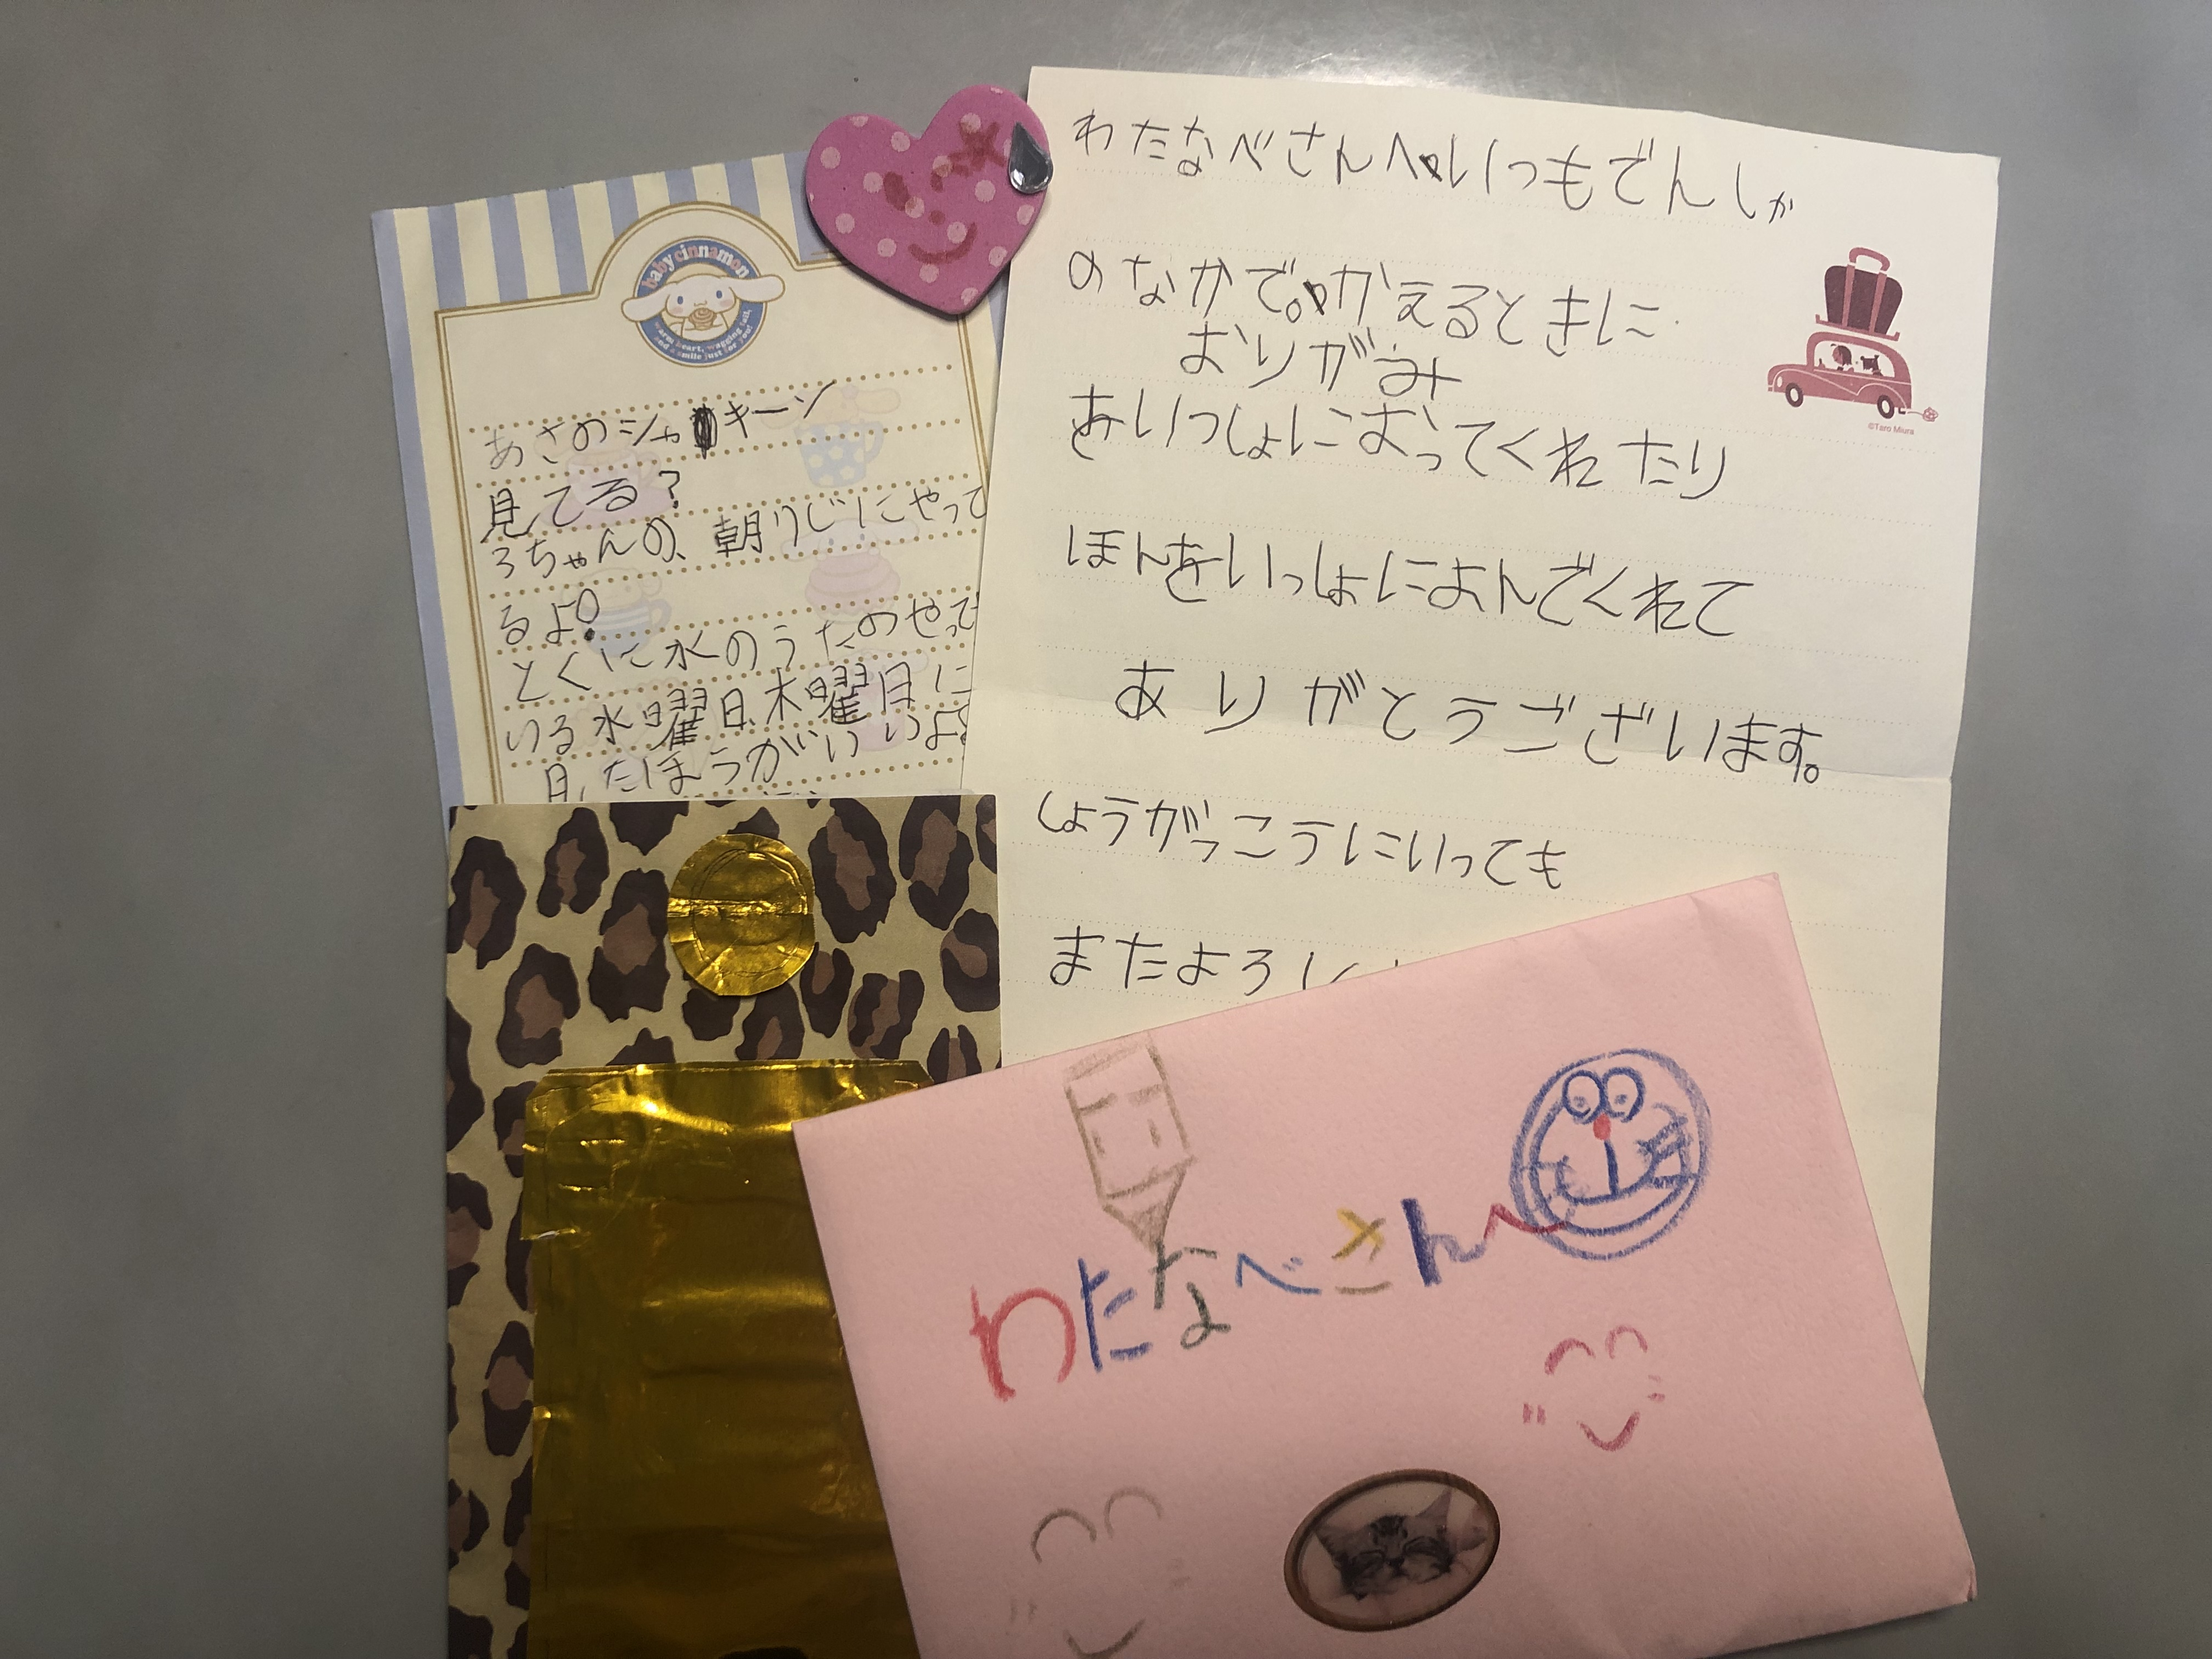 baby cinnamon
warm heart, wagging tail,
and a smile just for you!
あさのシャキーン
見てる?
3ちゃんの、朝りじにやって
るよ!
とくに水のうたのやって
いる水曜日、木曜日に
見たほうがいいよ!
わたなべさんへいつもでんしゃ
のなかで。かえるときに
おりがみ
をいっしょにおってくれたり
ほんをいっしょによんでくれて
ありがとうございます。
しょうがっこうにいっても
またよろしく
©Taro Miura
わたなべさんへ